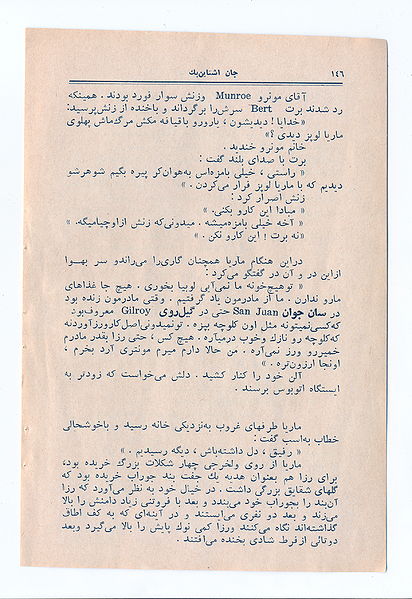 ۱۴۶ جان اشتاین‌بك
آقای مونرو Munroe وزنش سوار فورد بودند . همینکه
رد شدند برت Bert سرش‌را برگرداند و باخنده از زنش‌پرسید:
« خدایا ! دیدیشون ، یارورو باقیافه مکش مرگ‌ماش پهلوی
ماریا لوپز دیدی ؟»
خانم مونرو خندید .
برت با صدای بلند گفت :
« راستی ، خیلی بامزه‌اس به‌هوان‌کر پیره بگیم شوهرشو
دیدیم که با ماریا لوپز فرار می‌کردن . »
زنش اصرار کرد :
« مبادا این کارو بکنی. »
« آخه خیلی بامزه‌میشه . میدونی‌که زنش ازاوچیامیگه. »
«نه برت ! این کارو نکن . »
دراین هنگام ماریا همچنان گاری‌را می‌راندو سر بهــوا
ازاین در و آن در گفتگو می‌کرد :
« توهیچ‌خونه ما نمی‌آیی لوبیا بخوری . هیچ جا غذاهای
مارو ندارن . ما از مادرمون یاد گرفتیم . وقتی مادرمون زنده بود
در سان جوان San Juan حتی در گیل‌روی Gilroy معروف‌بود
که‌کسی‌نمیتونه مثل اون کلوچه بپزه . تونمیدونی‌اصل‌کارورآوردنه
که‌کلوچه رو نازك وخوب درمیآره . هیچ کس ، حتی رزا بقدر مادرم
خمیررو ورز نمی‌آره . من حالا دارم میرم مونتری آرد بخرم ،
اونجا ارزون‌تره . »
آلن خود را کنار کشید . دلش می‌خواست که زودتر به
ایستگاه اتوبوس برسند .
ماریا طرفهای غروب به‌نزدیکی خانه رسید و باخوشحالی
خطاب به‌اسب گفت :
« رفیق ، دل داشته‌باش ، دیگه رسیدیم . »
ماریا از روی ولخرجی چهار شکلات بزرگ خریده بود،
برای رزا هم بعنوان هدیه یك جفت بند جوراب خریده بود که
گلهای شقایق بزرگی داشت . در خیال خود به نظر می‌آورد که رزا
آن‌بند را بجوراب خود می‌بندد و بعد با فروتنی زیاد دامنش را بالا
می‌زند و بعد دو نفری می‌ایستند و در آینه‌ای که به کف اطاق
گذاشته‌اند نگاه می‌کنند ورزا کمی نوك پایش را بالا می‌گیرد وبعد
دوتائی ازفرط شادی بخنده می‌افتند .